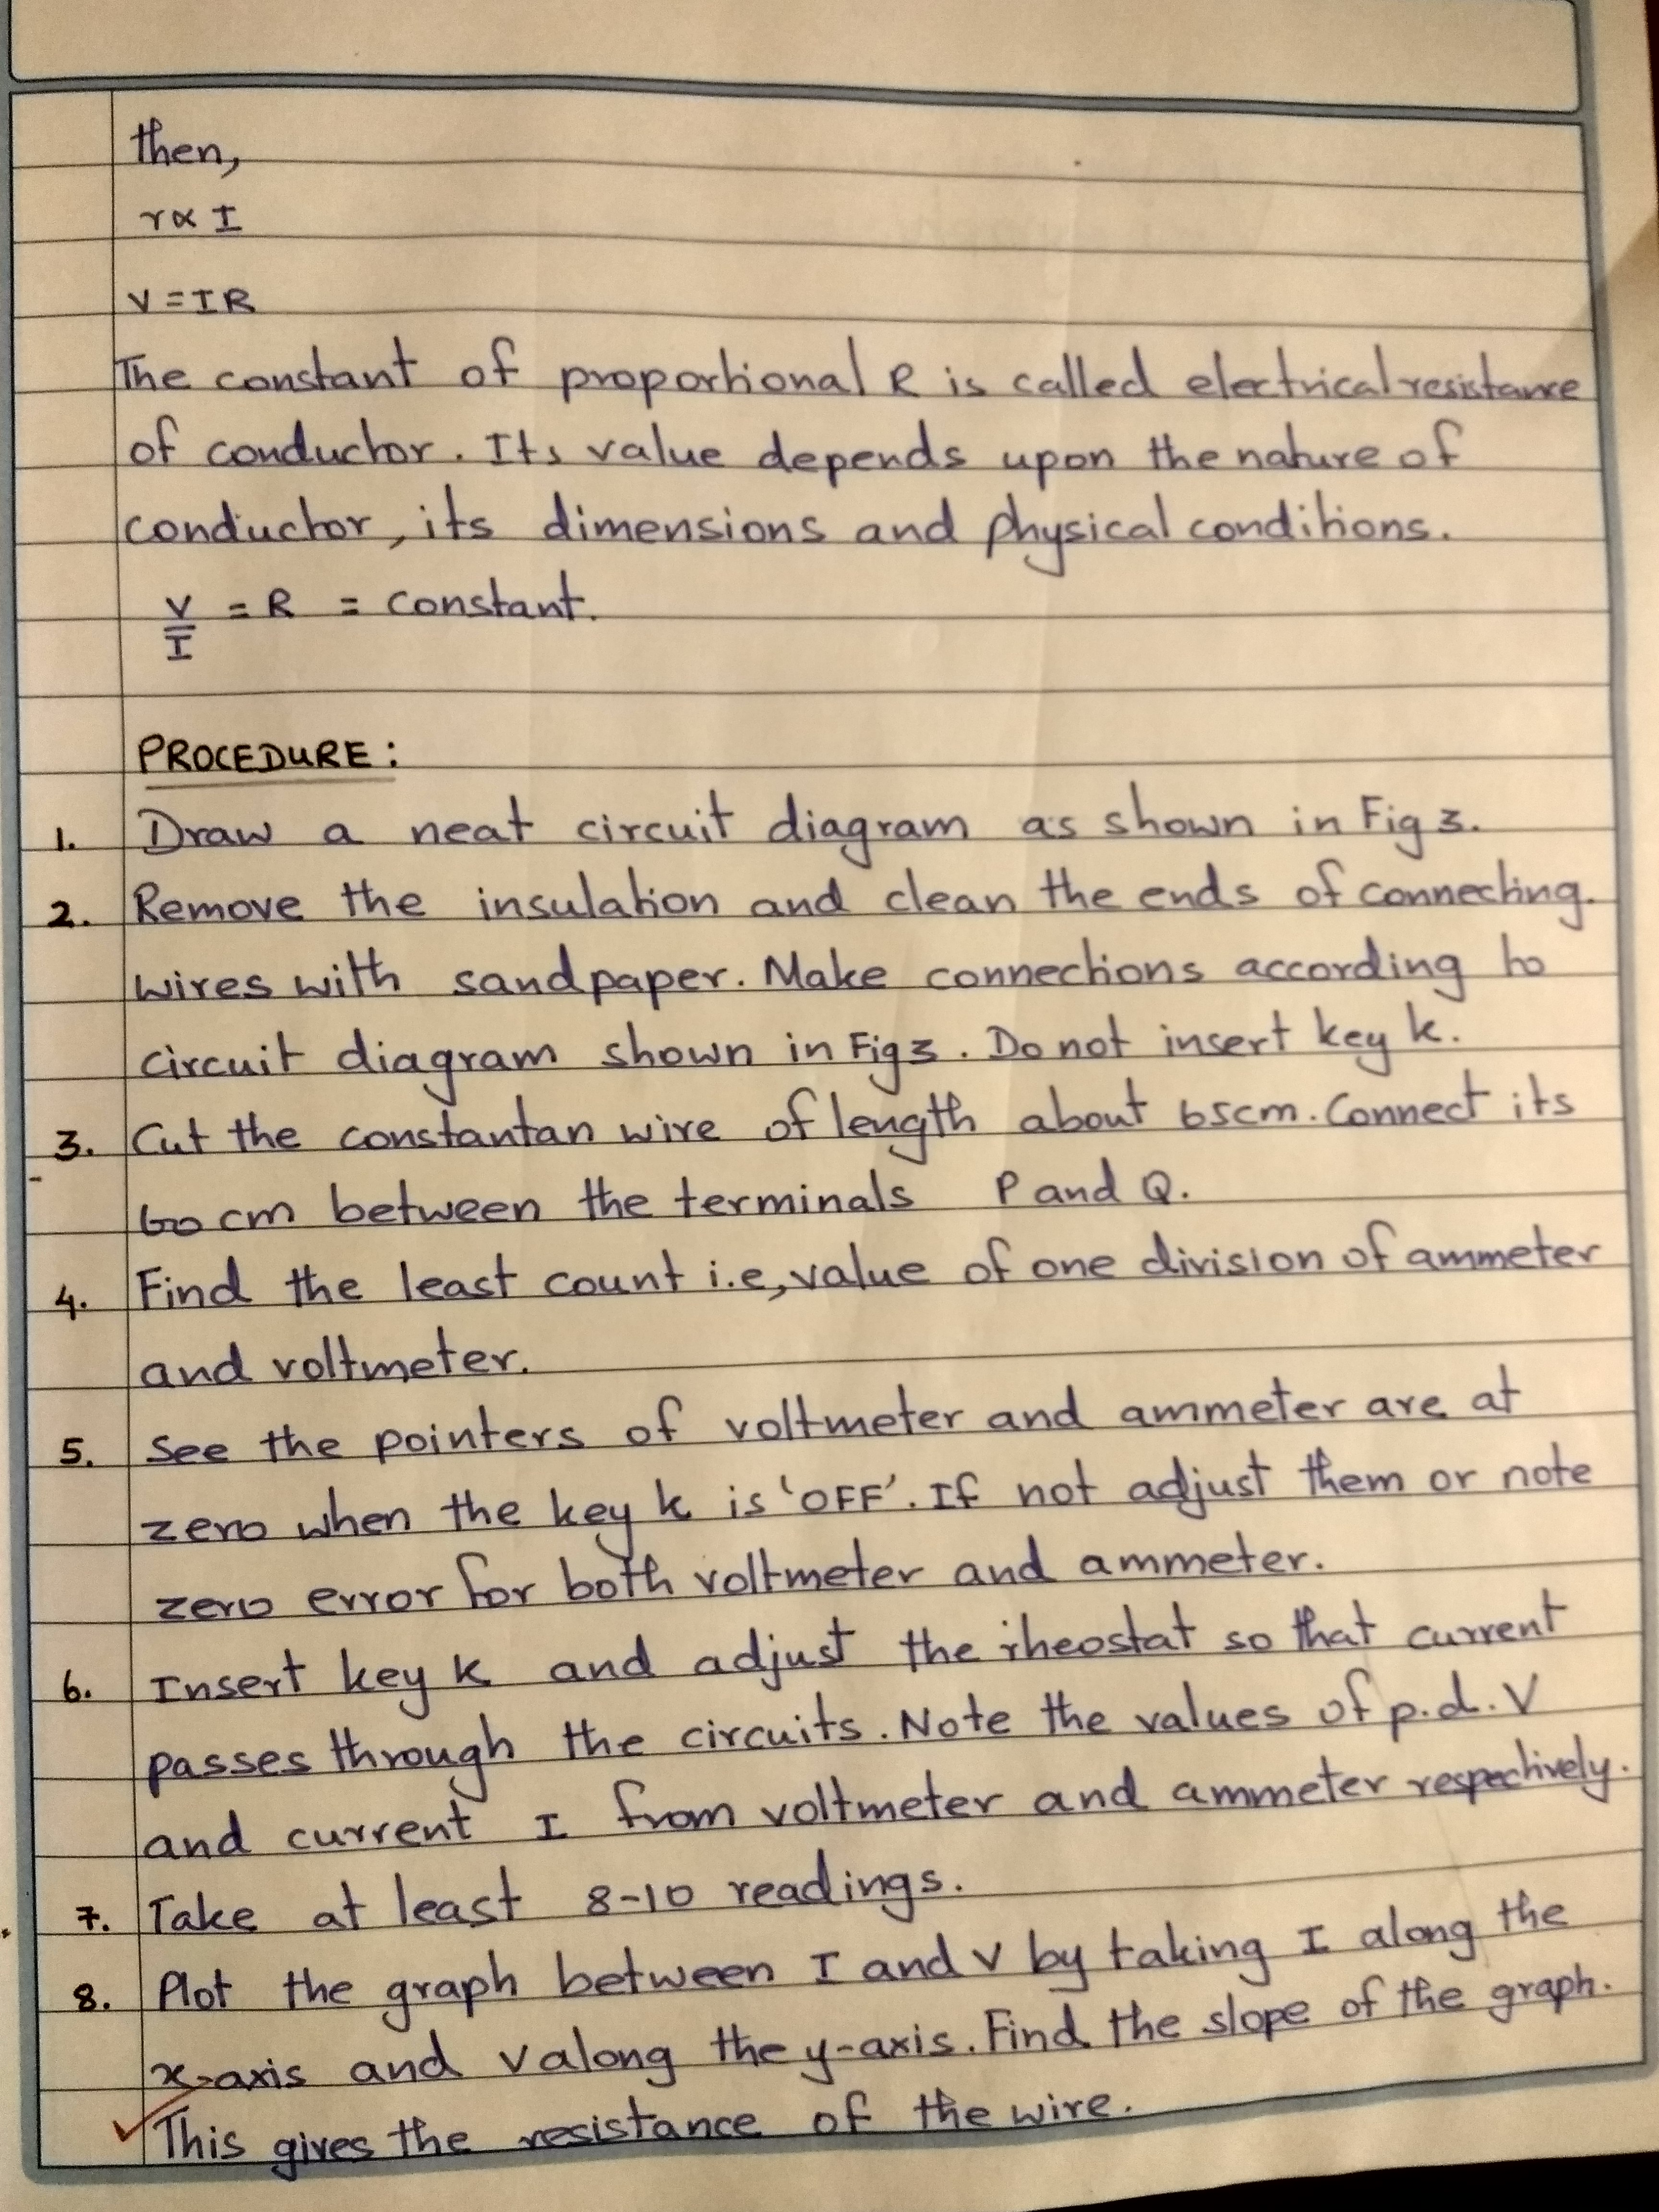 then,
r∝ I
V = IR
The constant of proportional R is called electrical resistance
of conductor. Its value depends upon the nature of
conductor, its dimensions and physical conditions.
V/I = R = constant.
PROCEDURE:
1. Draw a neat circuit diagram as shown in Fig 3.
2. Remove the insulation and clean the ends of connecting.
wires with sandpaper. Make connections according to
circuit diagram shown in Fig 3. Do not insert key k.
3. Cut the constantan wire of length about 65cm. Connect its
60 cm between the terminals P and Q.
4. Find the least count i.e, value of one division of ammeter
and voltmeter.
5. See the pointers of voltmeter and ammeter are at
zero when the key k is 'OFF'. If not adjust them or note
zero error for both voltmeter and ammeter.
6. Insert key K and adjust the rheostat so that current
passes through the circuits. Note the values of p.d. V
and current I from voltmeter and ammeter respectively.
7. Take at least 8-10 readings.
8. Plot the graph between I and V by taking I along the
x-axis and V along the y-axis. Find the slope of the graph.
This gives the resistance of the wire.